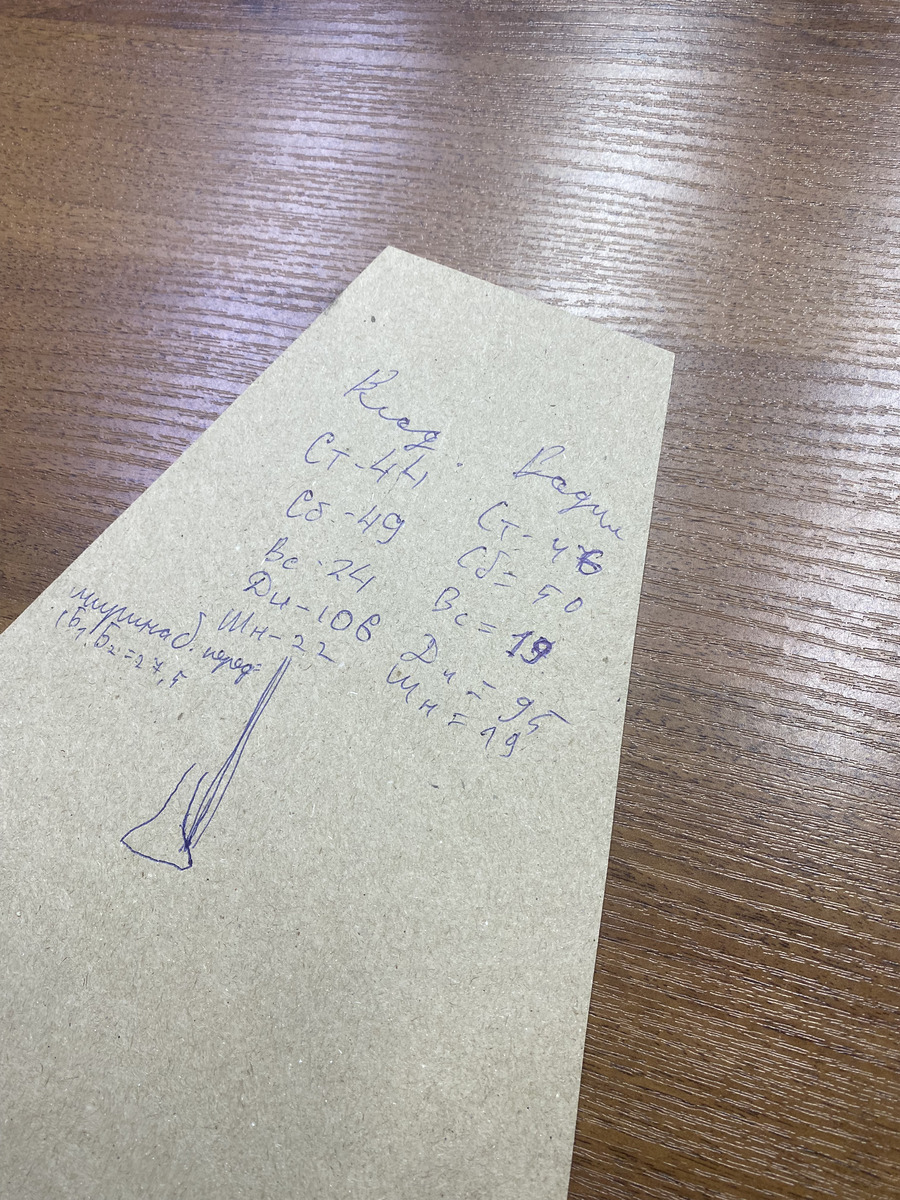 Влад.
Ст-44
Сб.-49
Вс-24
Ди-106
Шн-22
ширина б. перед=
Б₁Б₂=27,5
Вадим
Ст-46
Сб=50
Вс=19
Ди=95
Шн=19